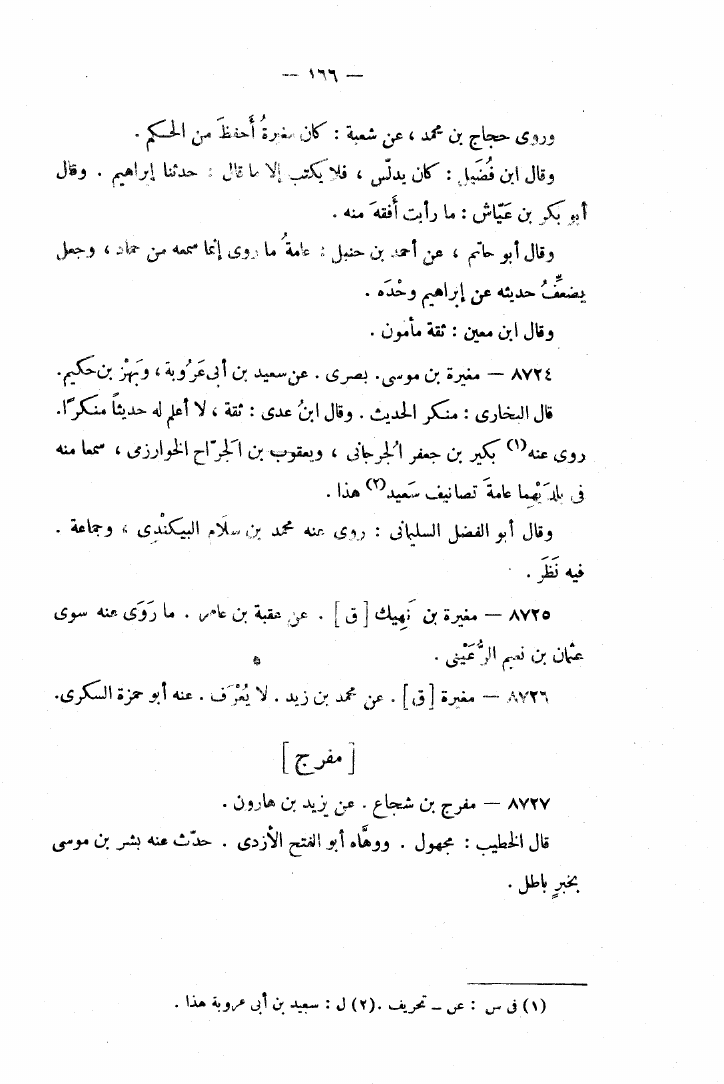 — ١٦٦ —
وروى حجاج بن محمد ، عن شعبة : كان مغيرةُ أحفظَ من الحكم .
وقال ابن فُضَيل : كان يدلّس ، فلا يكتب إلا ما قال : حدثنا إبراهيم . وقال
أبو بكر بن عَيّاش : ما رأيت أفقهَ منه .
وقال أبو حاتم ، عن أحمد بن حنبل : عامةُ ما روى إنما سمعه من حماد ، وجعل
يضعِّفُ حديثه عن إبراهيم وحْدَه .
وقال ابن معين : ثقة مأمون .
٨٧٢٤ — مغيرة بن موسى. بصرى . عن سعيد بن أبى عَرُوبة ، وبَهْزِ بن حكيم.
قال البخارى : منكر الحديث . وقال ابنُ عدى : ثقة ، لا أعلم له حديثاً منكرًا.
روى عنه(١) بكير بن جعفر الْجرجانى ، ويعقوب بن الْجرّاح الخوارزمى ، سمعا منه
فى بلدَيْهما عامةَ تصانيف سَعيد(٢) هذا .
وقال أبو الفضل السليمانى : روى عنه محمد بن سلَام البيكنْدِى ، وجماعة .
فيه نَظَر .
٨٧٢٥ — مغيرة بن نَهِيك [ ق ] . عن عقبة بن عامر . ما رَوَى عنه سوى
عثمان بن نعيم الرُّعَيْنى .
٨٧٢٦ — مغيرة [ ق ] . عن محمد بن زيد . لا يُعْرَف . عنه أبو حمزة السكرى.
[ مفرج ]
٨٧٢٧ — مفرج بن شجاع . عن يزيد بن هارون .
قال الخطيب : مجهول . ووهَّاه أبو الفتح الأزدى . حدّث عنه بشر بن موسى
بخبرٍ باطل .
(١) فى س : عن – تحريف .(٢) ل : سعيد بن أبى عروبة هذا .